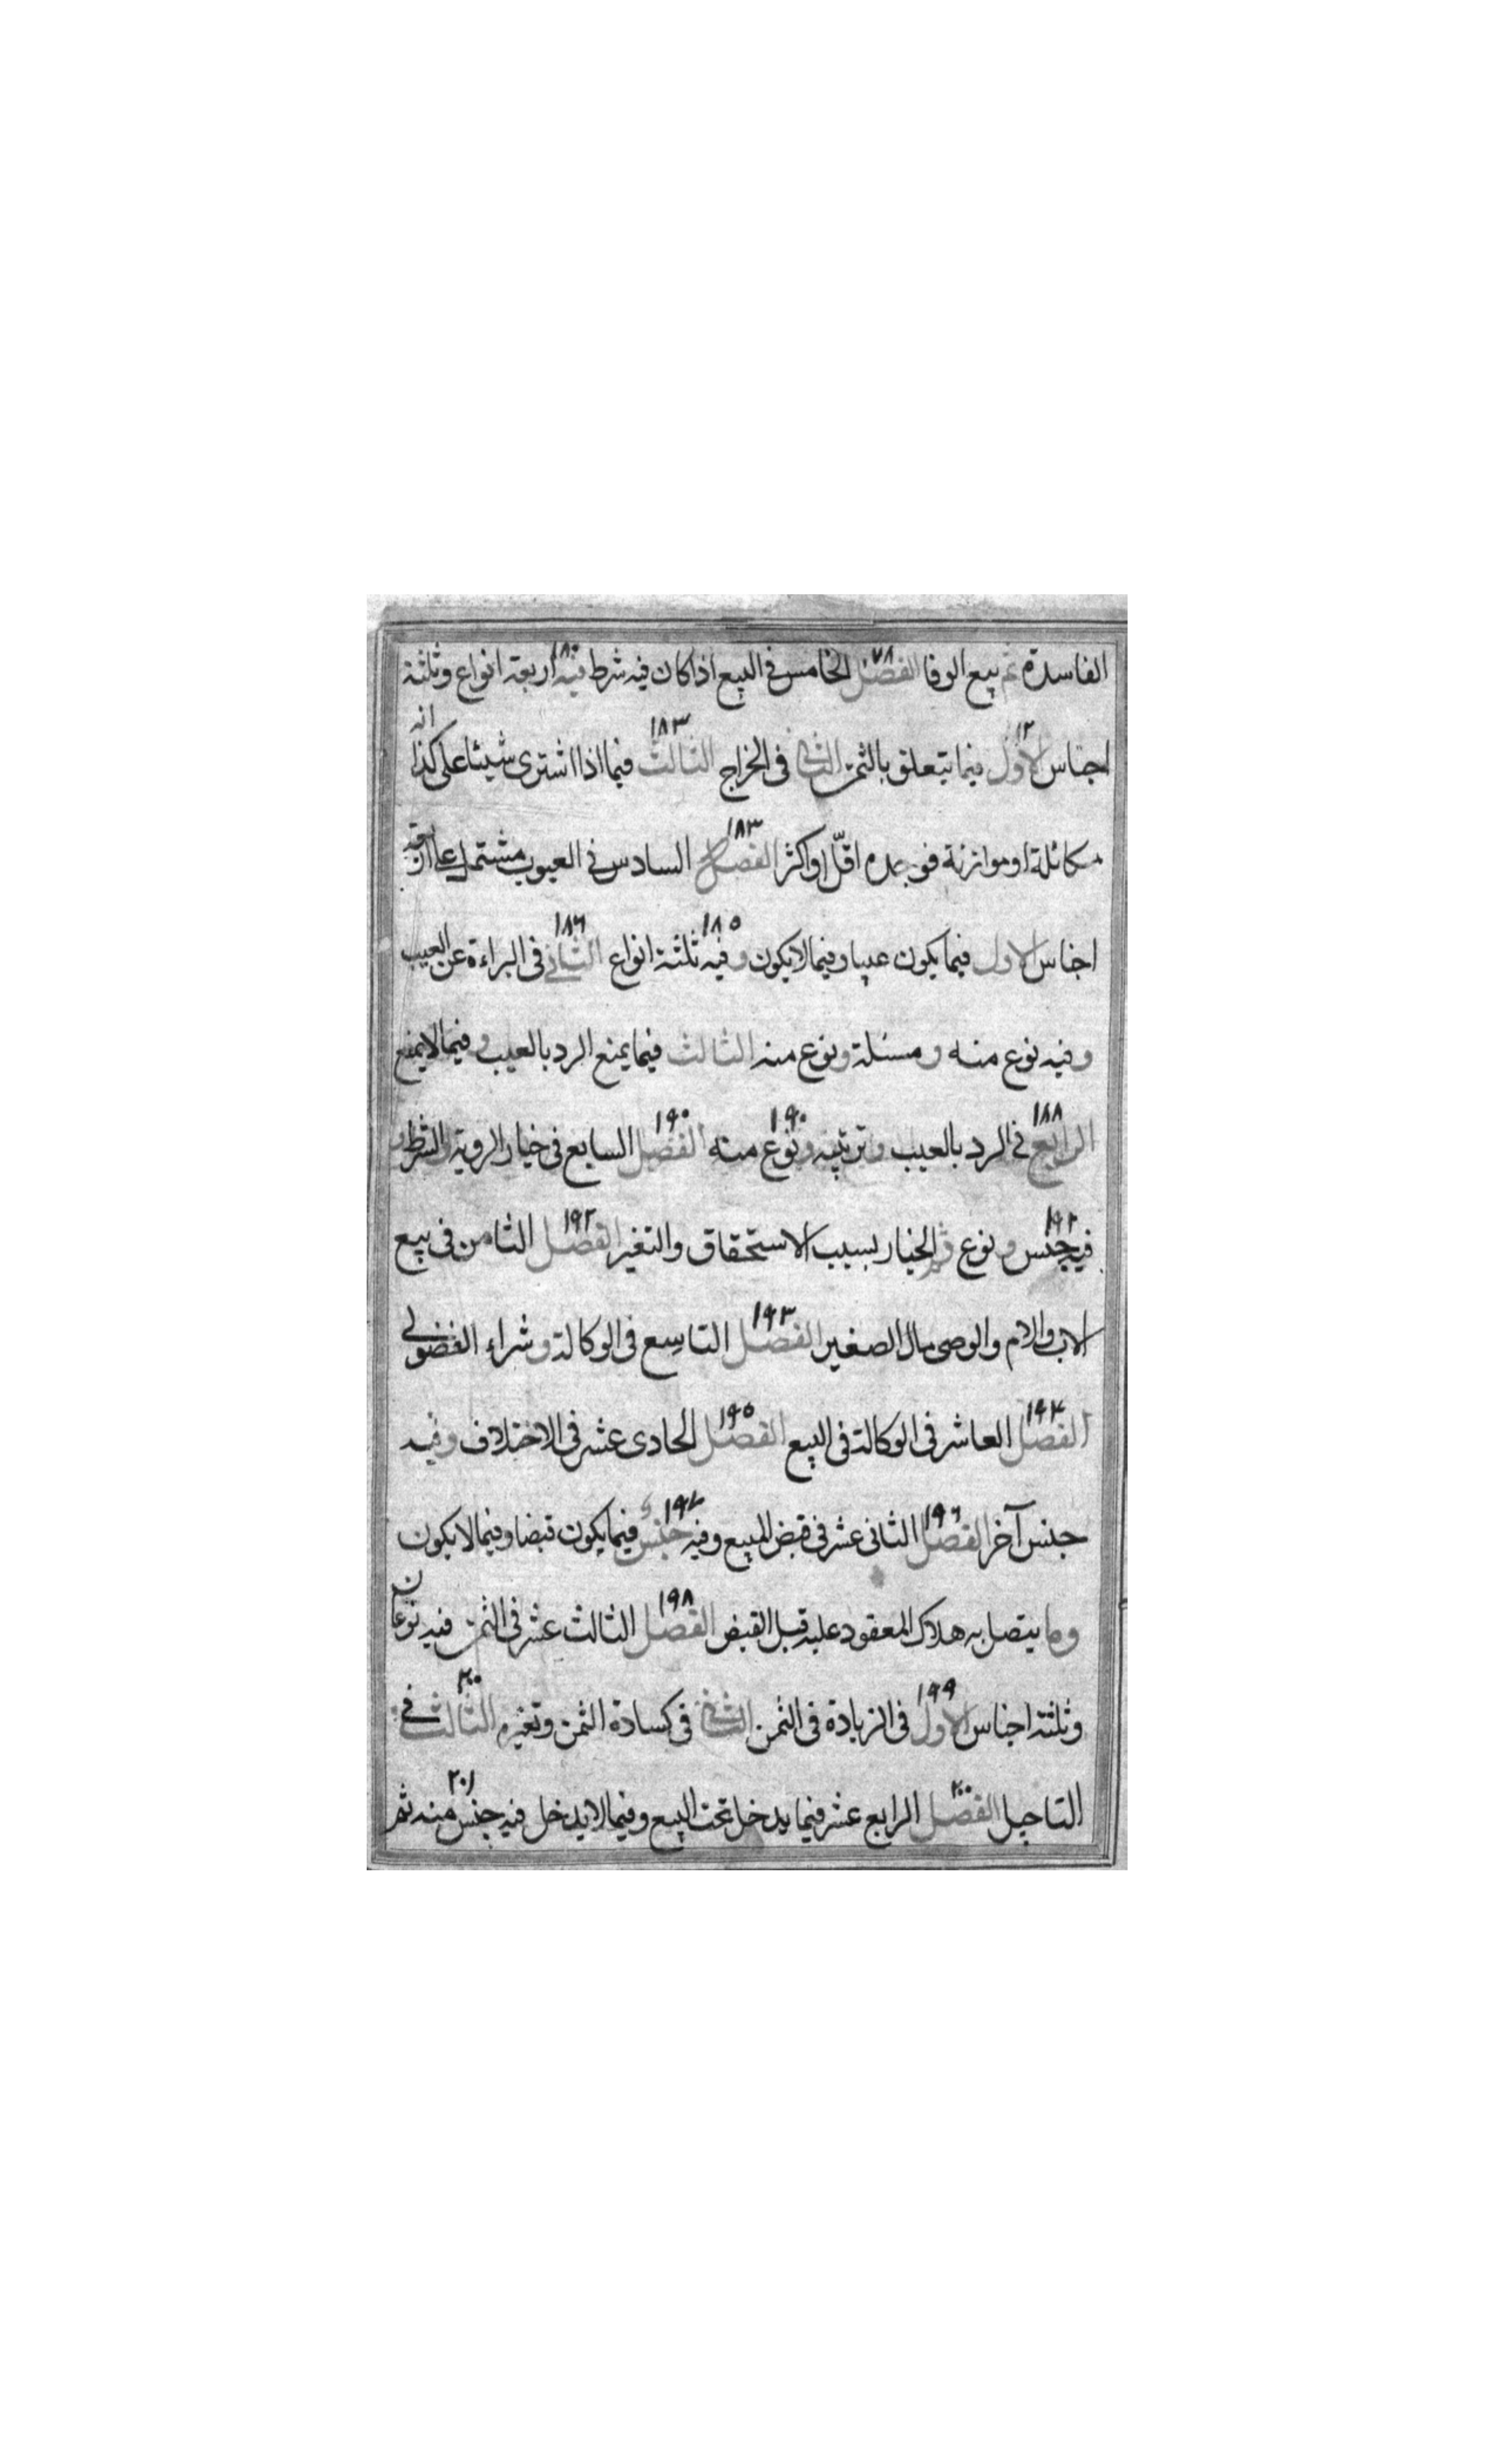 الفاسدة ثم بيع الوفا الفصل الخامس فى البيع اذا كان فيه شرط فيه اربعة انواع وثلثة
اجناس الاول فيما يتعلق بالثمن الثانى فى الخراج الثالث فيما اذا اشترى شيئا على انه كذا
مكائلة او موازنة فوجده اقلّ او اكثر الفصل السادس فى العيوب مشتمل على اربعة
اجناس الاول فيما يكون عيبا وفيما لا يكون وفيه ثلثة انواع الثانى فى البراءة عن العيب
وفيه نوع منه ومسئلة ونوع منه الثالث فيما يمنع الرد بالعيب وفيما لا يمنع
الرابع فى الرد بالعيب وترتيبه ونوع منه الفصل السابع فى خيار الروية والشرط
فيه جنس ونوع فى الخيار بسبب الاستحقاق والتغير الفصل الثامن فى بيع
الاب والام والوصى مال الصغير الفصل التاسع فى الوكالة وشراء الفضولى
الفصل العاشر فى الوكالة فى البيع الفصل الحادى عشر فى الاختلاف وفيه
جنس آخر الفصل الثانى عشر فى قبض المبيع وفيه جنس فيما يكون قبضا وفيما لا يكون
وما يتصل به هلاك المعقود عليه قبل القبض الفصل الثالث عشر فى الثمن فيه نوعان
وثلثة اجناس الاول فى الزيادة فى الثمن الثانى فى كسادة الثمن وتغيره الثالث فى
التاجيل الفصل الرابع عشر فيما يدخل تحت البيع وفيما لا يدخل فيه جنس منه ثم